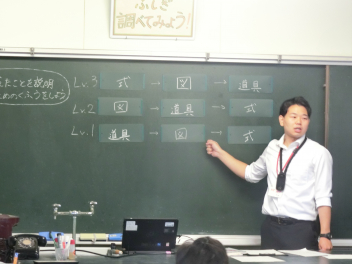 ふしぎ
調べてみよう!
たことを説明
ためのくふうをしよう
Lv.3 式 → 図 → 道具
Lv.2 図 → 道具 → 式
Lv.1 道具 → 図 → 式